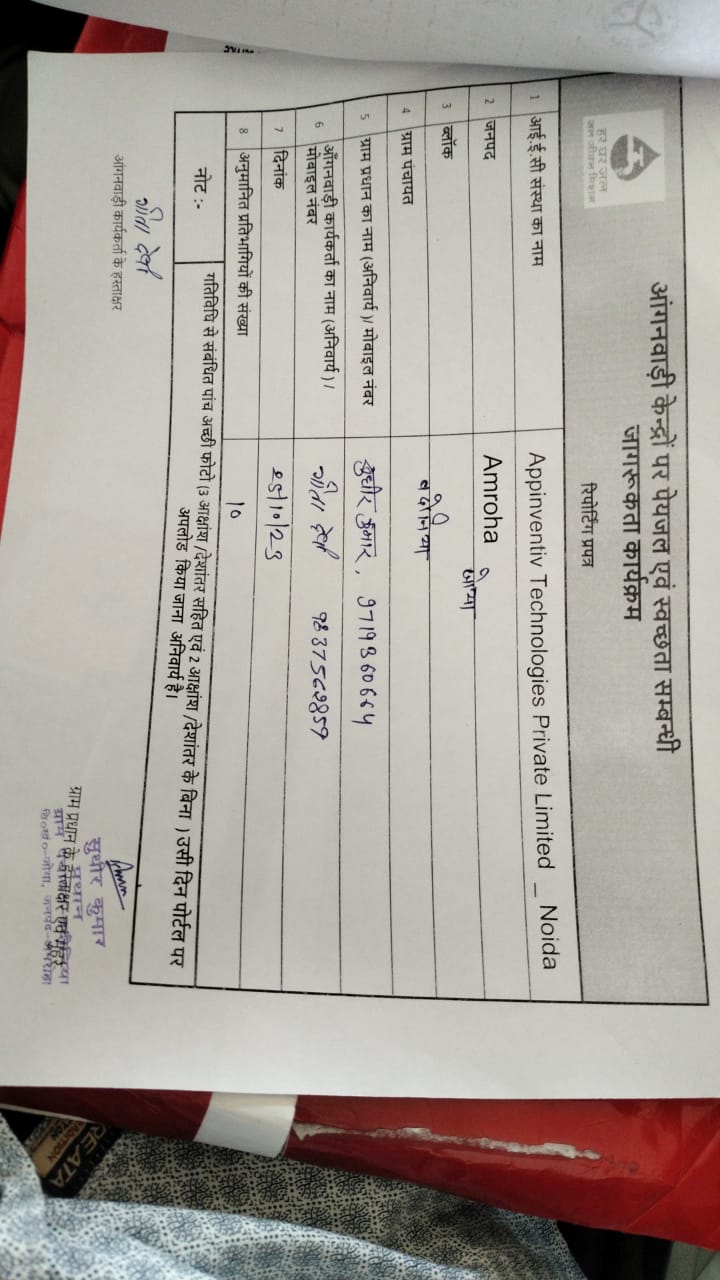 हर घर जल
जल जीवन मिशन
आंगनवाड़ी केन्द्रों पर पेयजल एवं स्वच्छता सम्बन्धी
जागरूकता कार्यक्रम
रिपोर्टिंग प्रपत्र
1 आई.ई.सी संस्था का नाम Appinventiv Technologies Private Limited _ Noida
2 जनपद Amroha
3 ब्लॉक
4 ग्राम पंचायत
5 ग्राम प्रधान का नाम (अनिवार्य)/ मोबाइल नंबर सुधीर कुमार, 9719360664
6 आँगनवाड़ी कार्यकर्ता का नाम (अनिवार्य)/
मोबाइल नंबर गीता देवी
7 दिनांक
8 अनुमानित प्रतिभागियों की संख्या 10
नोट :- गतिविधि से संबंधित पांच अच्छी फोटो (3 आक्षांश /देशांतर सहित एवं 2 आक्षांश /देशांतर के बिना ) उसी दिन पोर्टल पर
अपलोड किया जाना अनिवार्य है।
गीता देवी
आंगनवाड़ी कार्यकर्ता के हस्ताक्षर
सुधीर कुमार
ग्राम प्रधान के हस्ताक्षर एवं मुहर
ग्राम प्रधान